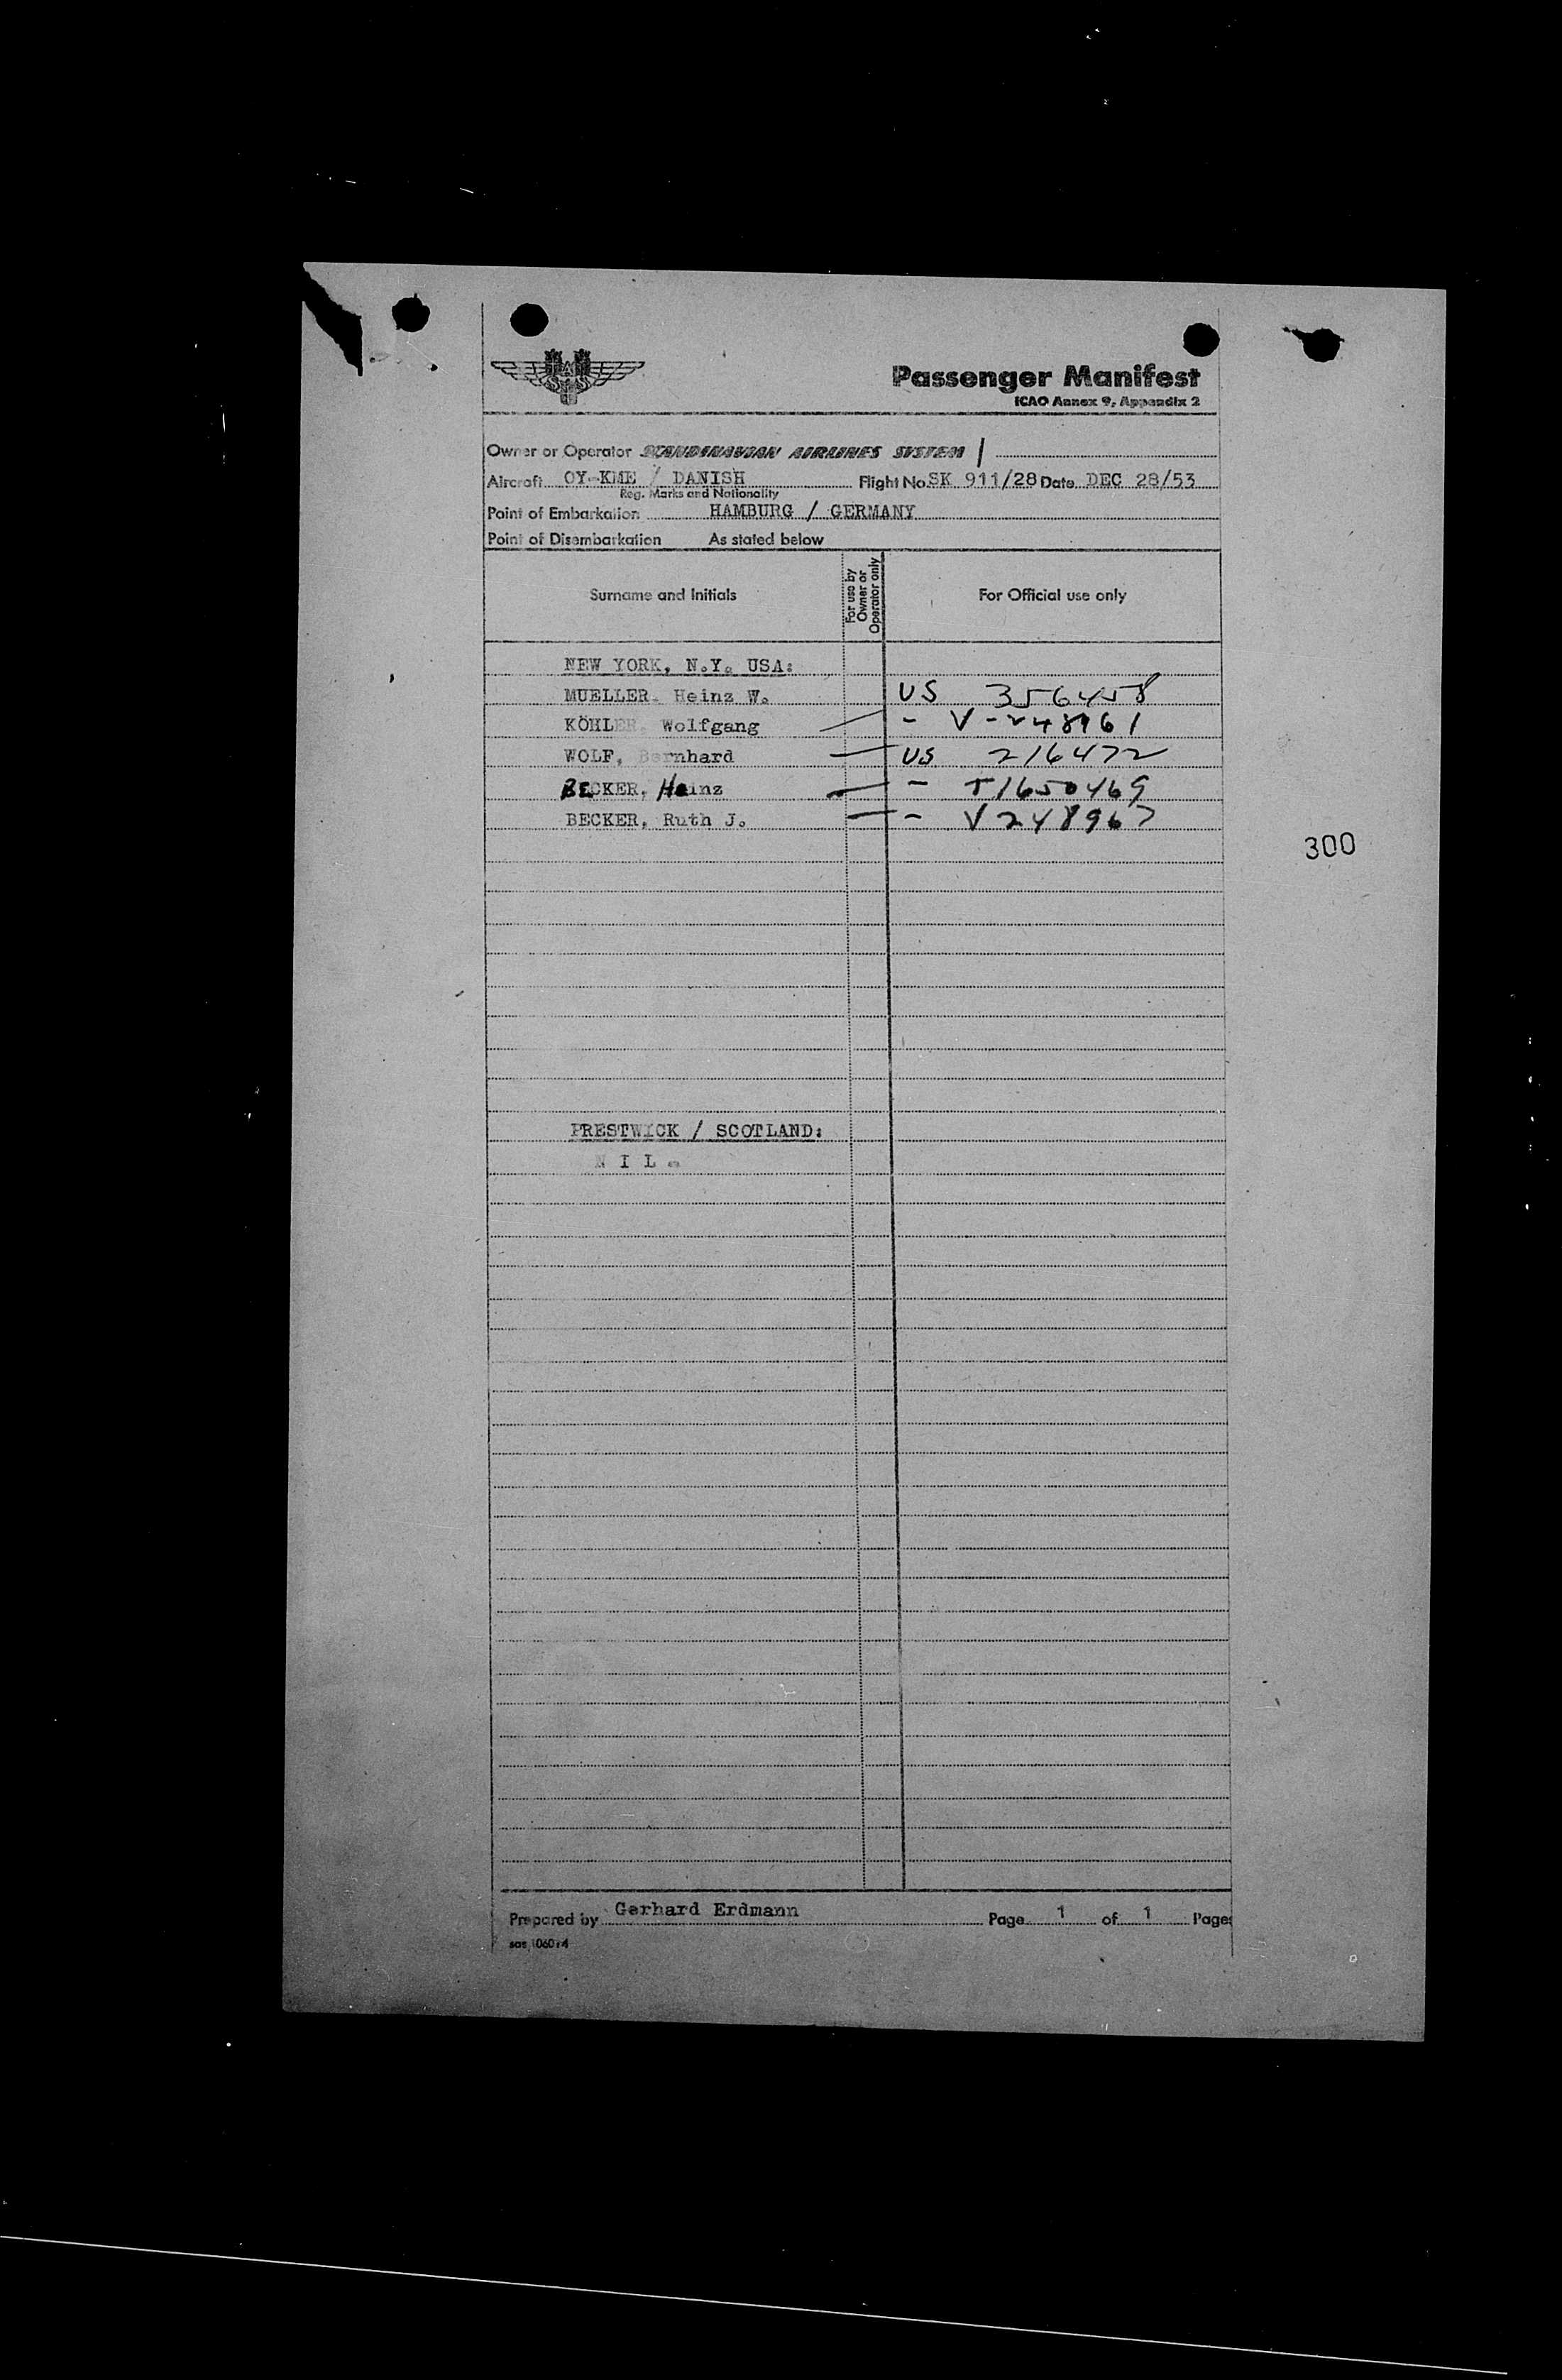 SAS
Passenger Manifest
ICAO Annex 9, Appendix 2
Owner or Operator SCANDINAVIAN AIRLINES SYSTEM /
Aircraft OY-KME / DANISH Flight No. SK 911/28 Date DEC 28/53
Reg. Marks and Nationality
Point of Embarkation HAMBURG / GERMANY
Point of Disembarkation As stated below
Surname and Initials For use by Owner or Operator only For Official use only
NEW YORK, N.Y. USA:
MUELLER, Heinz W. US 356458
KÖHLER, Wolfgang - V-248961
WOLF, Bernhard US 216472
BECKER, Heinz - T1650469
BECKER, Ruth J. - V248967
300
PRESTWICK / SCOTLAND:
N I L .
Prepared by Gerhard Erdmann Page 1 of 1 Pages
sas 1060:4